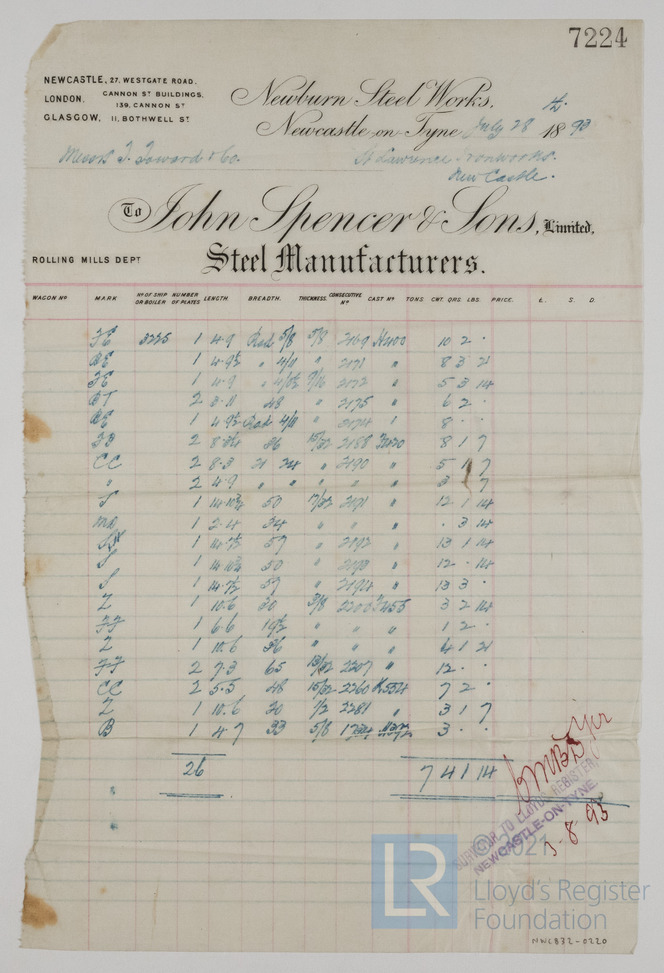 7224
NEWCASTLE, 27. WESTGATE ROAD.
LONDON. CANNON ST BUILDINGS.
139. CANNON ST
GLASGOW, 11, BOTHWELL ST
Newburn Steel Works,
Newcastle on Tyne July 28th 1893
Messrs T. Toward & Co.
St Lawrence Ironworks.
New Castle.
To John Spencer & Sons, Limited,
ROLLING MILLS DEPT
Steel Manufacturers.
WAGON No MARK No OF SHIP OR BOILER NUMBER OF PLATES LENGTH. BREADTH. THICKNESS. CONSECUTIVE No CAST No TONS CWT. QRS. LBS. PRICE. £. S. D.
3225 1 4.9 5/8 2169 10 2 .
1 4.9½ " 4/11 " 2171 " 8 3 21
1 4.9 " " 2172 " 5 3 14
2 48 " 2175 " 6 2 .
1 4.9½ 4/11 " 8 . .
2 36 15/32 2188 8 1 7
CC 2 8.3 21 24 " 2190 " 5 1 7
" 2 4.9 " " " " " 3 7
S 1 14.10¾ 50 17/32 2191 " 12 1 14
1 2.4 34 " " " . 3 14
1 14.7½ 57 " 2192 " 13 1 14
S 1 14.10¾ 50 " 2193 " 12 . 14
S 1 14.7½ 57 " 2194 " 13 3 .
Z 1 10.6 30 3/8 2200 3 2 14
FF 1 6.6 19½ " " " 1 2 .
Z 1 10.6 36 " " " 4 1 21
FF 2 7.3 65 13/32 2207 " 12 . .
CC 2 5.5 48 15/32 2260 K554 7 2 .
Z 1 10.6 20 1/2 2281 " 3 1 7
B 1 4.7 33 5/8 3 . .
26
7 4 1 14
SURVEYOR TO LLOYD'S REGISTER
NEWCASTLE-ON-TYNE
3-8-93
© 2021
LR
Lloyd's Register
Foundation
NWCB32-0220